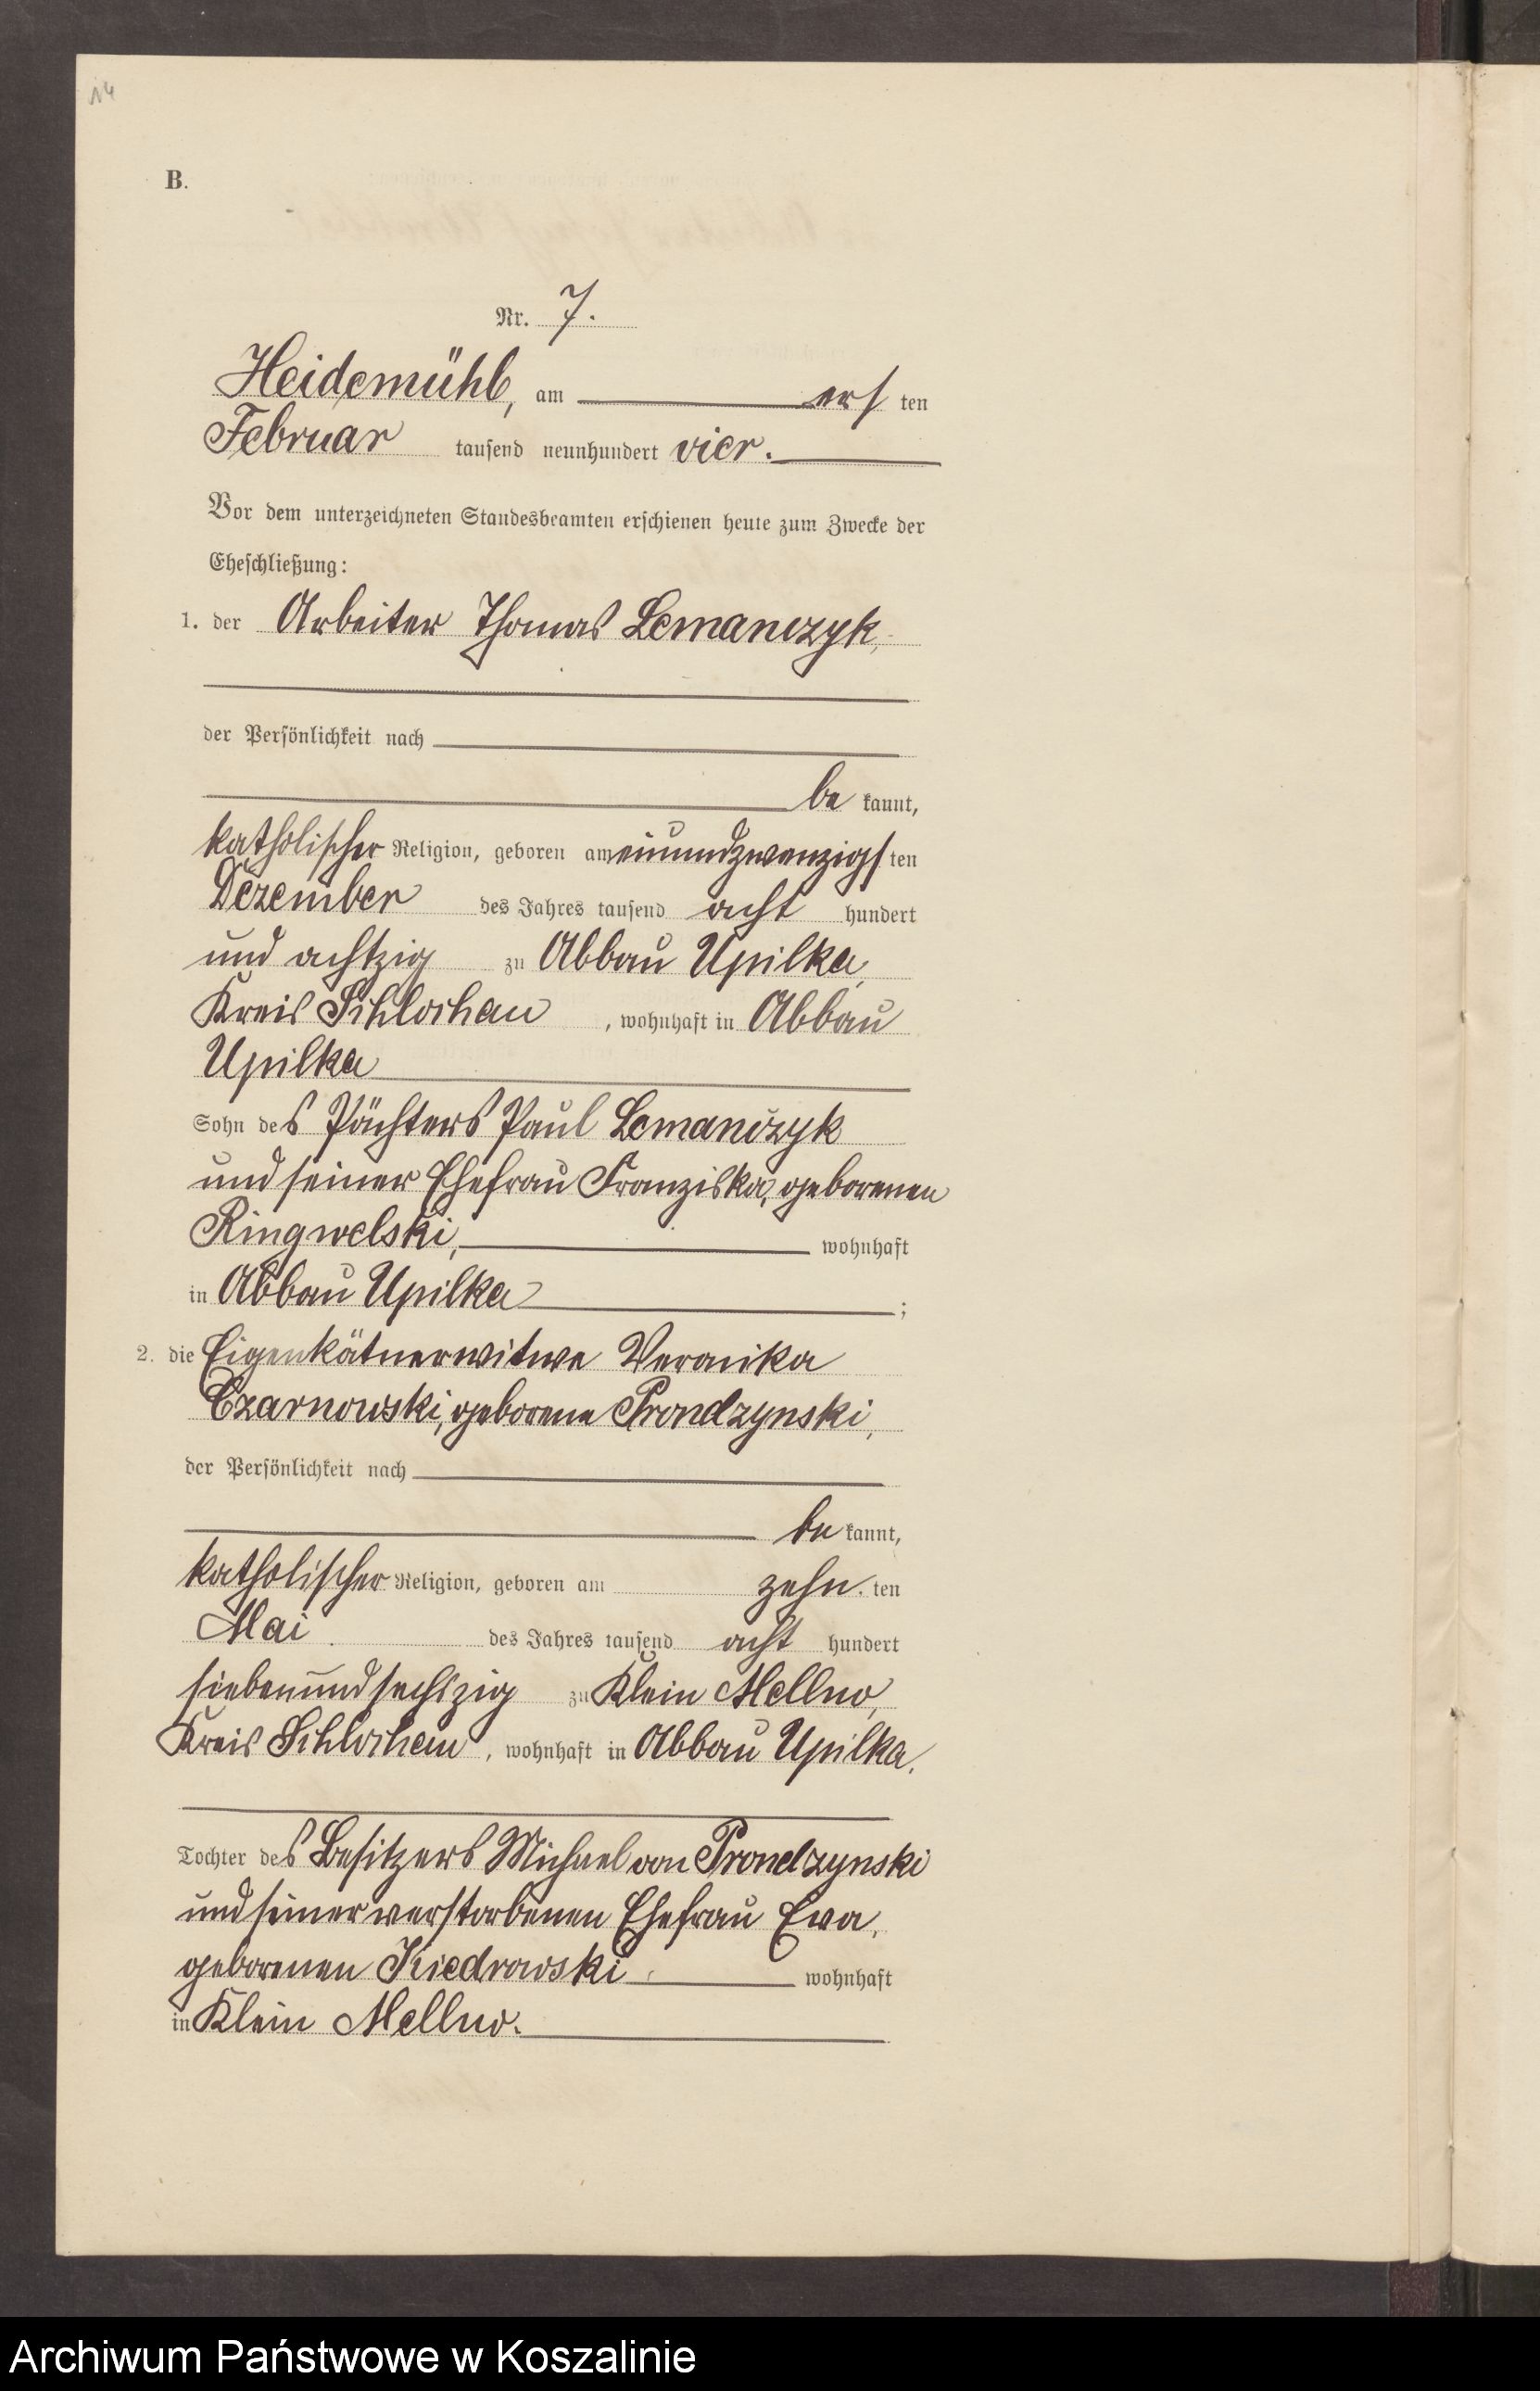 14
B.
Nr. 7.
Heidemühl, am ersten
Februar tausend neunhundert vier.
Vor dem unterzeichneten Standesbeamten erschienen heute zum Zwecke der
Eheschließung:
1. der Arbeiter Thomas Lemanczyk,
der Persönlichkeit nach
be kannt,
katholischer Religion, geboren am einundzwanzigsten
Dezember des Jahres tausend acht hundert
und achtzig zu Abbau Upilka,
Kreis Schlochau, wohnhaft in Abbau
Upilka
Sohn des Pächters Paul Lemanczyk
und seiner Ehefrau Franziska, geborenen
Ringwelski, wohnhaft
in Abbau Upilka ;
2. die Eigenkätnerwitwe Veronika
Czarnowski, geborene Prondzynski,
der Persönlichkeit nach
be kannt,
katholischer Religion, geboren am zehn. ten
Mai des Jahres tausend acht hundert
siebenundsechszig zu Klein Mellno,
Kreis Schlochau, wohnhaft in Abbau Upilka.
Tochter des Besitzers Michael von Prondzynski
und seiner verstorbenen Ehefrau Eva,
geborenen Kiedrowski wohnhaft
in Klein Mellno.
Archiwum Państwowe w Koszalinie